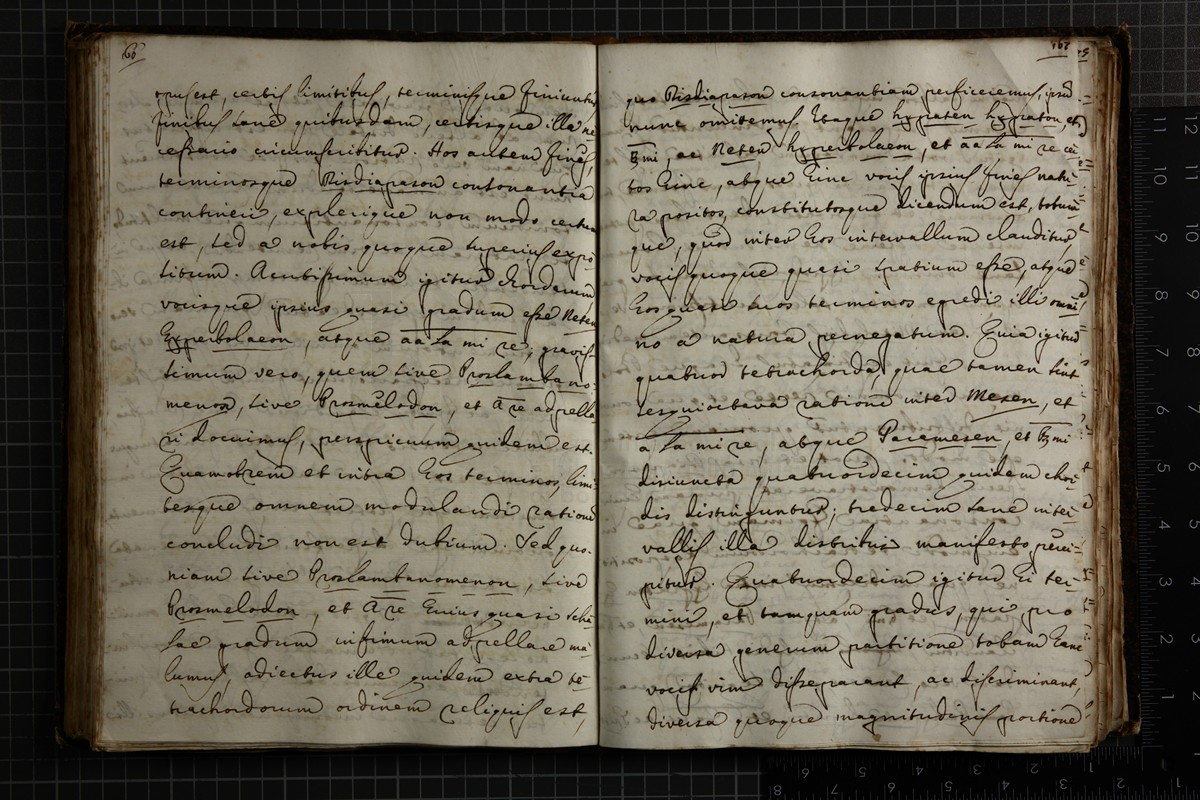 166
opus est, certis limitibus, terminisque finiuntur
finibus sane quibusdam, certisque illa ne
cessario circumscribitur. Hos autem fines,
terminosque Bisdiapason consonantia
contineri, explerique non modo certum
est, sed a nobis quoque superius expo-
situm. Acutissimum igitur chordarum
vocisque ipsius quasi gradum esse Neten
Hyperbolaeon, atque aa la mi re; gravis-
simum vero, quem sive Proslambano-
menon, sive Prosmelodon, et A re adpella
ri docuimus, perspicuum quidem est.
Quamobrem et intra hos terminos, limi-
tesque omnem modulandi rationem
concludi non est dubium. Sed quo-
niam sive Proslambanomenon, sive
Prosmelodon, et A re huius quasi scha-
lae gradum infimum adpellare ma-
lumus, adiectus ille quidem extra te-
trachordorum ordinem reliquis est,
167
quo Bisdiapason consonantiam perficeremus, ipsum
nunc omittemus. Itaque hypaten hypaton, et
♮ mi, ac Neten hyperbolaeon, et aa la mi re cer-
tos hinc, atque hinc vocis ipsius fines natu-
ra positos, constitutosque dicendum est, totum-
que, quod inter hos intervallum clauditur
vocis quoque quasi spatium esse, atque
hos quasi suos terminos egredi illi omni-
no a natura pernegatum. Quia igitur
quatuor tetrachorda, quae tamen sint
sesquioctava ratione inter Mesen, et
a la mi re, atque Paramesen, et ♮ mi
disiuncta quatuordecim quidem chor-
dis distinguntur; tredecim sane inter-
vallis illa distribui manifesto perci-
pitur. Quatuordecim igitur hi ter-
mini, et tamquam gradus, qui pro
diversa generum partitione totam hanc
vocis vim disseparant, ac discriminant,
diversa quoque magnitudinis portione